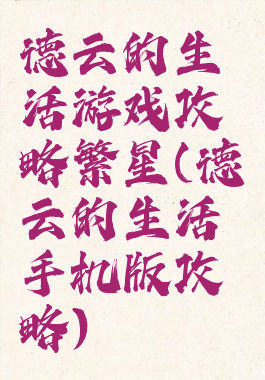 德云的生
活游戏攻
略繁星(德
云的生活
手机版攻
略)